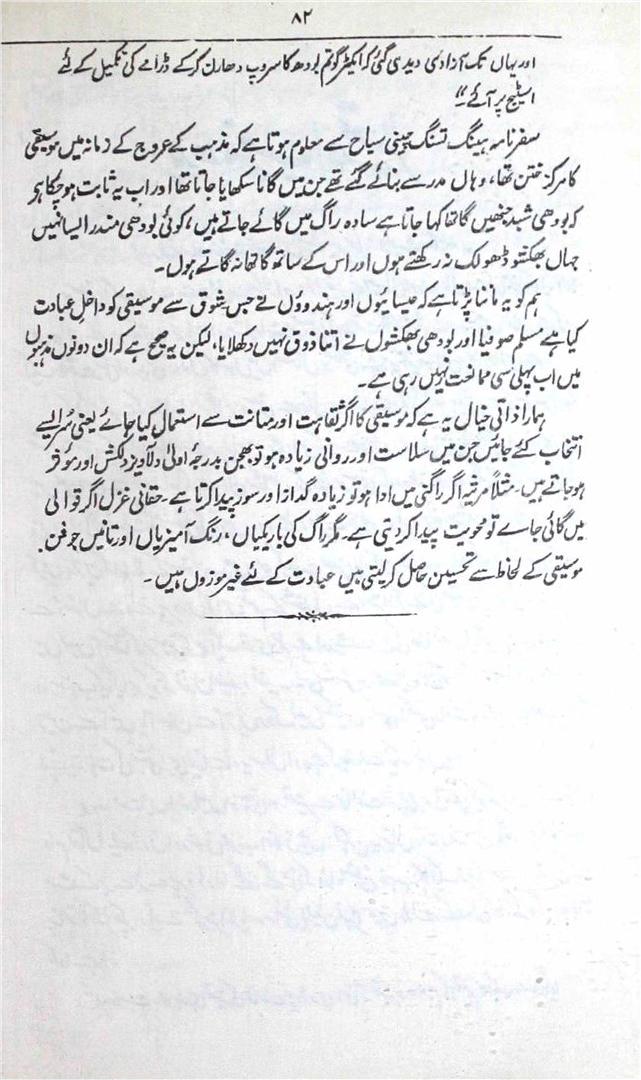 ۸۲
اور یہاں تک آزادی دیدی گئی کہ ایکٹر گوتم بودھ کا سروپ دھارن کرکے ڈرامے کی تکمیل کے لئے
اسٹیج پر آئے۔"
سفرنامہ ہینگ تسنگ چینی سیاح سے معلوم ہوتا ہے کہ مذہب کے عروج کے زمانہ میں موسیقی
کا مرکز ختن تھا، وہاں مدرسے بنائے گئے تھے جن میں گانا سکھایا جاتا تھا اور اب یہ ثابت ہوچکا ہے
کہ بودھی شبد جنھیں گاتھا کہا جاتا ہے سادہ راگ میں گائے جاتے ہیں، کوئی بودھی مندر ایسا نہیں
جہاں بھکشو ڈھولک نہ رکھتے ہوں اور اس کے ساتھ گاتھا نہ گاتے ہوں۔
ہم کو یہ ماننا پڑتا ہے کہ عیسائیوں اور ہندوؤں نے جس شوق سے موسیقی کو داخل عبادت
کیا ہے مسلم صوفیا اور بودھی بھکشوں نے اتنا ذوق نہیں دکھلایا، لیکن یہ صحیح ہے کہ ان دونوں مذہبوں
میں اب پہلی سی ممانعت نہیں رہی ہے۔
ہمارا ذاتی خیال یہ ہے کہ موسیقی کا اگر ثقاہت اور متانت سے استعمال کیا جائے یعنی سُر ایسے
انتخاب کئے جائیں جن میں سلاست اور روانی زیادہ ہو تو بھجن بدرجۂ اولیٰ دلآویز دلکش اور موثر
ہوجاتے ہیں۔ مثلاً مرثیہ اگر راگنی میں ادا ہو تو زیادہ گداز اور سوز پیدا کرتا ہے۔ حقانی غزل اگر قوالی
میں گائی جاے تو محویت پیدا کردیتی ہے۔ مگر راگ کی باریکیاں، رنگ آمیزیاں اور تانیں جو فن
موسیقی کے لحاظ سے تحسین حاصل کرلیتی ہیں عبادت کے لئے غیر موزوں ہیں۔